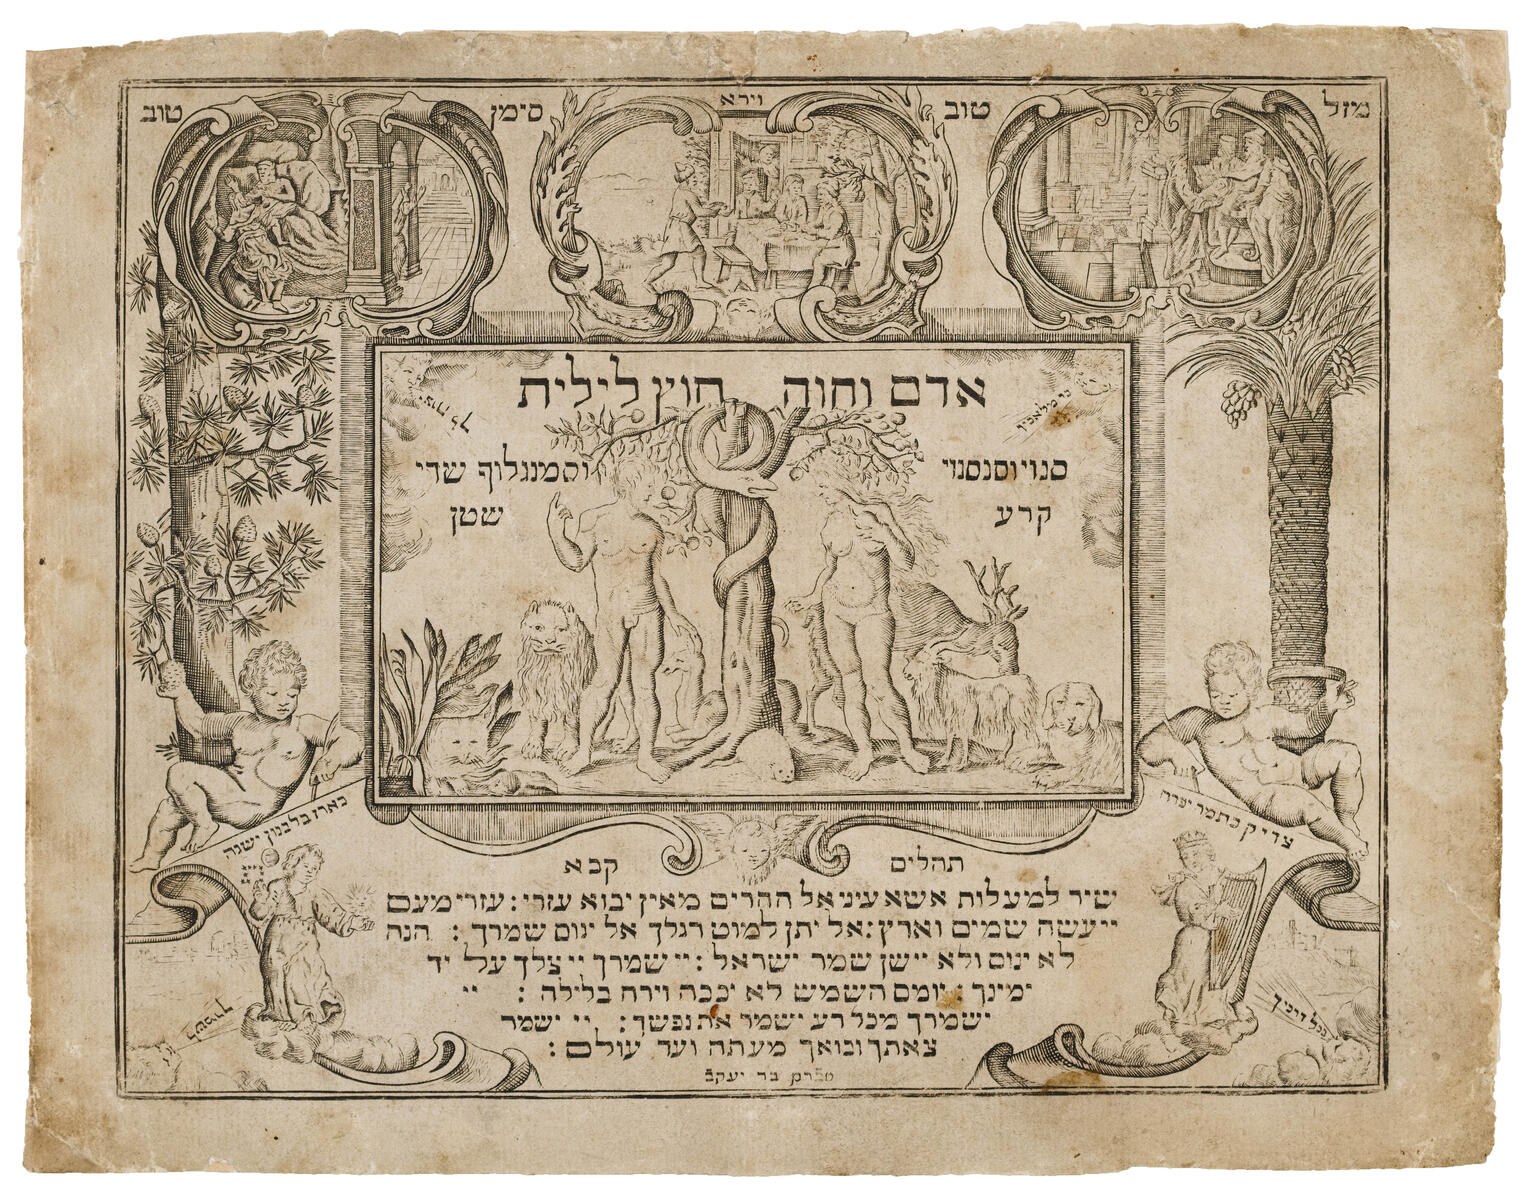 מזל טוב וירא סימן טוב
אדם וחוה חוץ לילית
כי מלאכיו
יצוה לך
סנוי וסנסנוי וסמנגלוף שדי
קרע שטן
צדיק כתמר יפרח
כארז בלבנון ישגה
תהלים קכא
שיר למעלות אשא עיני אל ההרים מאין יבוא עזרי : עזרי מעם
יי עשה שמים וארץ : אל יתן למוט רגלך אל ינום שמרך : הנה
לא ינום ולא יישן שמר ישראל : יי שמרך יי צלך על יד
ימינך : יומם השמש לא יככה וירח בלילה : יי
ישמרך מכל רע ישמר את נפשך : יי ישמר
צאתך ובואך מעתה ועד עולם :
לשמרך
בכל דרכיך
בר יעקב